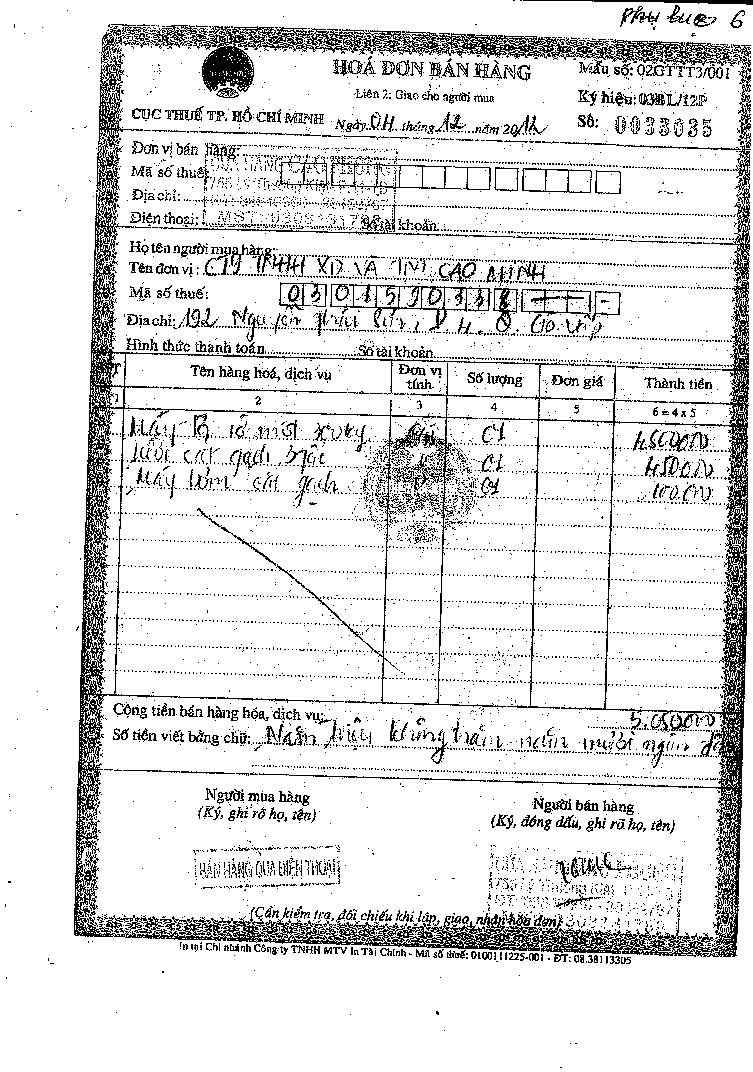 Phụ lục 6
HOÁ ĐƠN BÁN HÀNG
Mẫu số: 02GTTT3/001
Liên 2: Giao cho người mua
Ký hiệu: 03BL/12P
CỤC THUẾ TP. HỒ CHÍ MINH
Ngày 04 tháng 12 năm 2012
Số: 0033035
Đơn vị bán hàng:
Mã số thuế:
Địa chỉ:
Điện thoại: Số tài khoản
Họ tên người mua hàng:
Tên đơn vị: CTY TNHH XD VÀ TM CAO MINH
Mã số thuế:
Địa chỉ: 192 Nguyễn Thái Sơn, P 4. Q Gò Vấp
Hình thức thanh toán Số tài khoản
Tên hàng hoá, dịch vụ Đơn vị tính Số lượng Đơn giá Thành tiền
2 3 4 5 6=4x5
01 4500000
cắt gạch 01 450000
Máy cắt gạch 01 100.000
Cộng tiền bán hàng hóa, dịch vụ: 5.050000
Số tiền viết bằng chữ: Năm triệu không trăm năm mươi ngàn đ
Người mua hàng
(Ký, ghi rõ họ, tên)
Người bán hàng
(Ký, đóng dấu, ghi rõ họ, tên)
BÁN HÀNG QUA ĐIỆN THOẠI
(Cần kiểm tra, đối chiếu khi lập, giao, nhận hóa đơn)
In tại Chi nhánh Công ty TNHH MTV In Tài Chính - Mã số thuế: 0100111225-001 - ĐT: 08.38113305